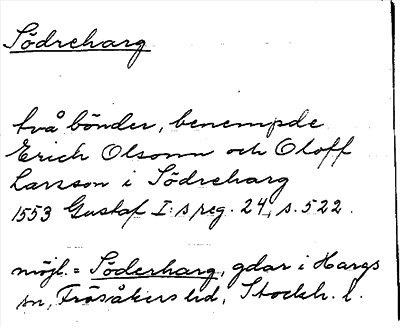 Södreharg
två bönder, benempde
Erich Olsonn och Oloff
Larsson i Södreharg
1553 Gustaf I:s reg. 24, s. 522.
möjl. = Söderharg, gdar i Hargs
sn, Frösåkers hd, Stockh. l.